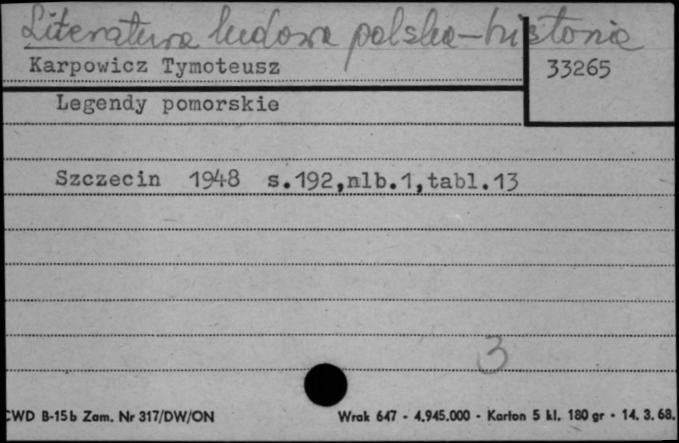 Literatura ludowa polska-historia
Karpowicz Tymoteusz
33265
Legendy pomorskie
Szczecin 1948 s.192,nlb.1,tabl.13
3
CWD B-15b Zam. Nr 317/DW/ON
Wrak 647 - 4.945.000 - Karton 5 kl. 180 gr - 14. 3. 68.